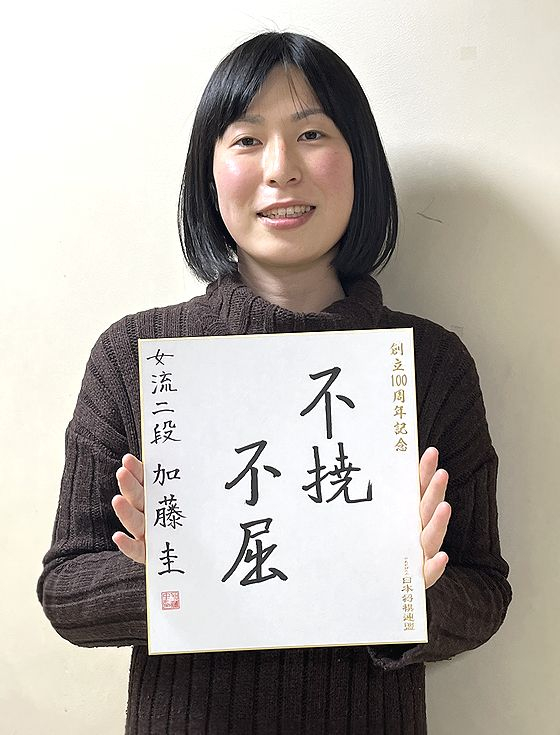 創立100周年記念
不撓
不屈
女流二段 加藤圭
日本将棋連盟